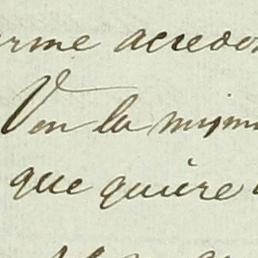 rme acreedo
Ven la mism
que quiere